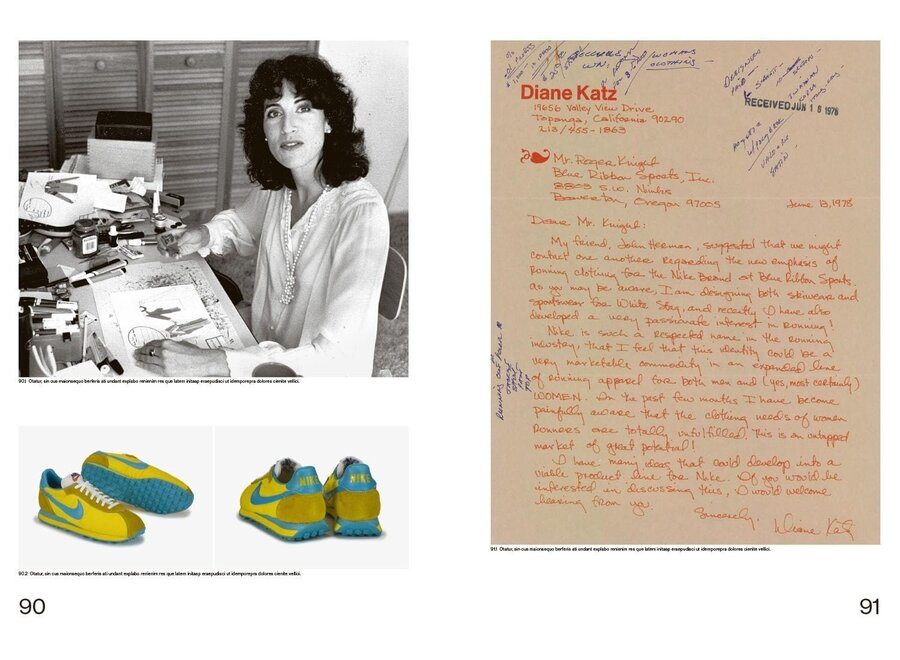 90.1 Otatur, sin cus maionsequo berferis ati undant explabo renienim res que latem initasp eraepudisci ut idemporepra dolores cienite vellici.
NIKE
90.2 Otatur, sin cus maionsequo berferis ati undant explabo renienim res que latem initasp eraepudisci ut idemporepra dolores cienite vellici.
90
WOMANS
CLOTHING
Diane Katz
19656 Valley View Drive
Topanga, California 90290
213/455-1863
RECEIVED JUN 16 1978
Mr. Roger Knight
Blue Ribbon Sports, Inc.
8803 S.W. Nimbus
Beaverton, Oregon 97005
June 13, 1978
Dear Mr. Knight:
My friend, John Herman, suggested that we might
contact one another regarding the new emphasis of
running clothing for the Nike Brand at Blue Ribbon Sports.
As you may be aware, I am designing both skiwear and
sportswear for White Stag, and recently I have also
developed a very passionate interest in running!
Nike is such a respected name in the running
industry, that I feel that this identity could be a
very marketable commodity in an expanded line
of running apparel for both men and (yes, most certainly)
WOMEN. In the past few months I have become
painfully aware that the clothing needs of women
runners are totally unfulfilled. This is an untapped
market of great potential!
I have many ideas that could develop into a
viable product line for Nike. If you would be
interested in discussing this, I would welcome
hearing from you.
Sincerely,
Diane Katz
91.1 Otatur, sin cus maionsequo berferis ati undant explabo renienim res que latem initasp eraepudisci ut idemporepra dolores cienite vellici.
91